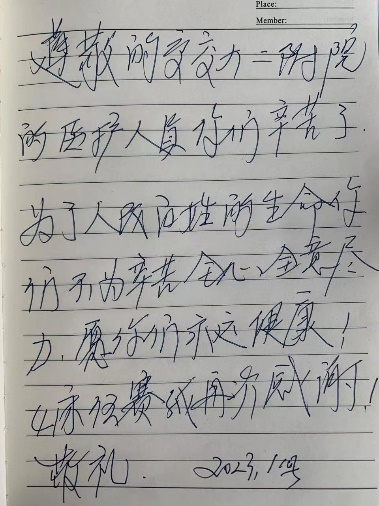 Place:
Member:
尊敬的交交大二附院
的医护人员你们辛苦了.
为了人民百姓的生命你
们不为辛苦全心全意尽
力.愿你们永远健康!
4床 再次感谢!
敬礼. 2023,1